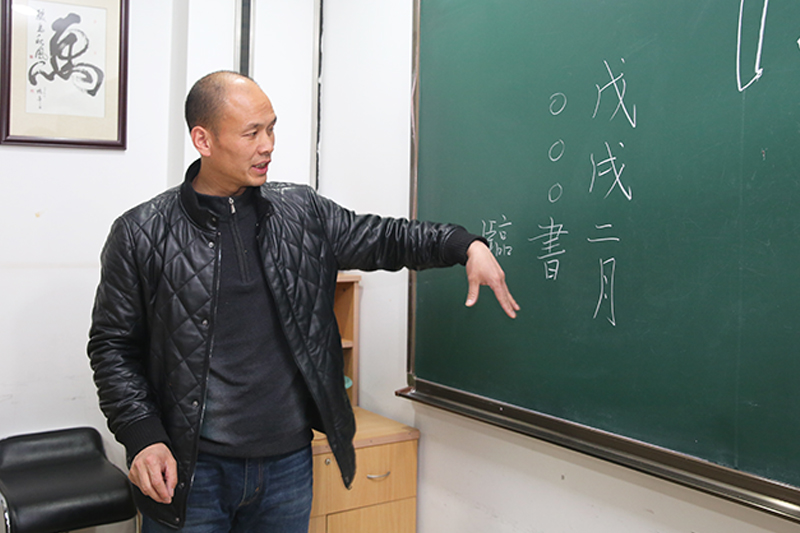 戊戌二月
○○○書
臨